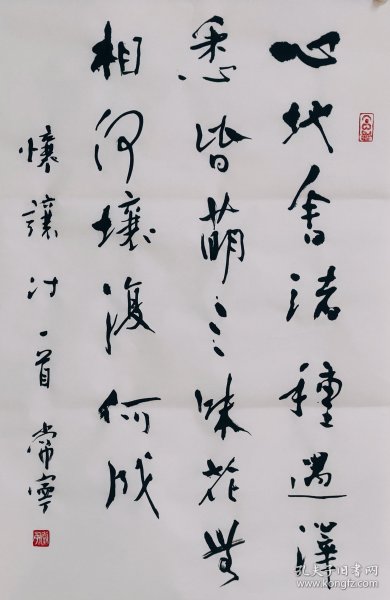 心地含諸種遇澤
悉皆萌三昧花無
相何壞復何成
懷讓詩一首 常寧
孔夫子旧书网